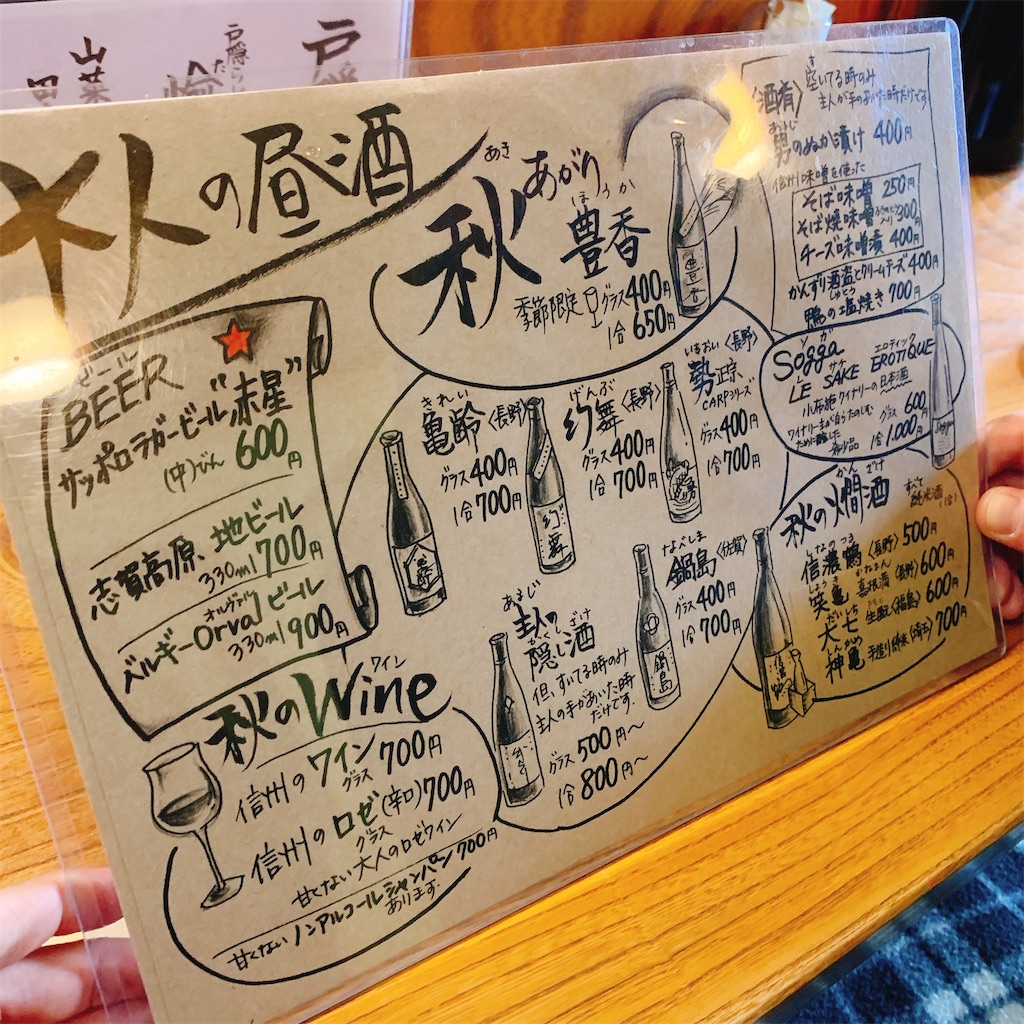 戸隠
山菜
大人の昼酒
BEER
ビール
サッポロラガービール"赤星"
(中)びん 600円
志賀高原、地ビール
330ml 700円
ベルギーOrvalビール
オルヴァル
330ml 900円
秋あがり
あき
豊香
ほうか
季節限定 グラス400円
1合 650円
豊香
亀齢〈長野〉
きれい
グラス400円
1合 700円
幻舞〈長野〉
げんぶ
グラス400円
1合 700円
幻舞
勢正宗〈長野〉
いきおい
CARPシリーズ
グラス400円
1合 700円
鍋島〈佐賀〉
なべしま
グラス400円
1合 700円
鍋島
主人の
あるじ
隠し酒
かくしざけ
但、すいてる時のみ
主人の手があいた時
だけです.
グラス500円〜
1合800円〜
秋のWine
ワイン
信州のワイン 700円
グラス
信州のロゼ(辛口)700円
グラス
甘くない大人のロゼワイン
甘くないノンアルコールシャンパン 700円
あります.
〈酒肴〉
空いてる時のみ
主人が手のあいた時だけです
男のぬか漬け 400円
あるじ
信州味噌を使った
そば味噌 250円
そば焼味噌 300円
チーズ味噌漬 400円
かんずり酒盗とクリームチーズ 400円
しゅとう
鴨の塩焼き 700円
Sogga
ソガ
LE SAKE EROTIQUE
サケ エロティック
小布施ワイナリーの日本酒
ワイナリー主が自らたのしむ
ために醸した
希少品
グラス 600円
1合 1,000円
Sogga
秋の燗酒
かんざけ
すべて
純米酒
(1合)
信濃鶴〈長野〉500円
しなのつる
笑亀 嘉根満〈長野〉600円
しょうき かねまん
大七 生酛〈福島〉600円
だいしち
神亀 手造り純米〈埼玉〉700円
しんかめ